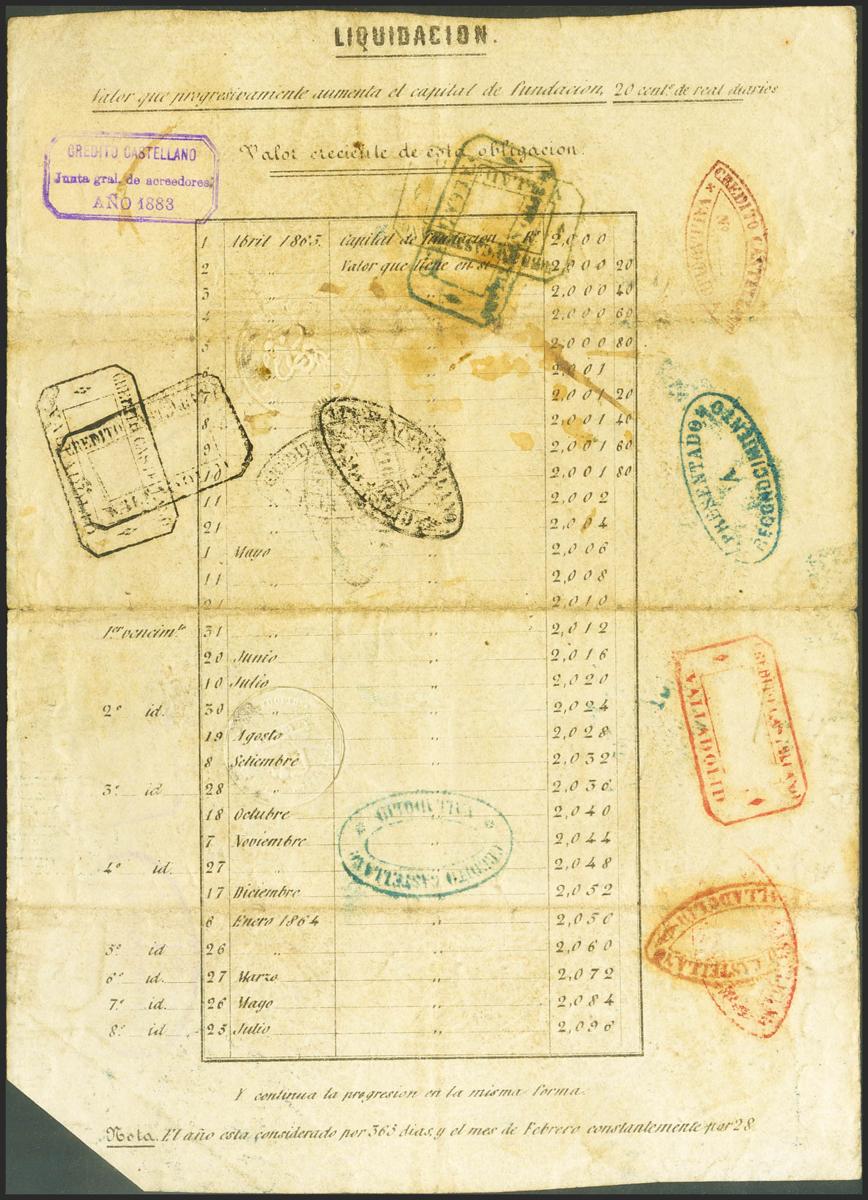 LIQUIDACION.
Valor que progresivamente aumenta el capital de fundacion, 20 cents. de real diarios
Valor creciente de esta obligacion.
CREDITO CASTELLANO
Junta gral. de acreedores.
AÑO 1883
1 Abril 1863. Capital de fundacion Rs. 2,000
2 „ Valor que tiene en si 2,000 20
3 „ „ 2,000 40
4 „ „ 2,000 60
5 „ „ 2,000 80
6 „ „ 2,001
7 „ „ 2,001 20
8 „ „ 2,001 40
9 „ „ 2,001 60
10 „ „ 2,001 80
11 „ „ 2,002
21 „ „ 2,004
1 Mayo „ 2,006
11 „ „ 2,008
21 „ „ 2,010
1er vencimto 31 „ „ 2,012
20 Junio „ 2,016
10 Julio „ 2,020
2º id. 30 „ „ 2,024
19 Agosto „ 2,028
8 Setiembre „ 2,032
3º id 28 „ „ 2,036
18 Octubre „ 2,040
7 Noviembre „ 2,044
4º id. 27 „ „ 2,048
17 Diciembre „ 2,052
6 Enero 1864 „ 2,056
5º id 26 „ „ 2,060
6º id. 27 Marzo „ 2,072
7º id. 26 Mayo „ 2,084
8º id. 25 Julio „ 2,096
Y continua la progresion en la misma forma.
Nota. El año esta considerado por 365 dias, y el mes de Febrero constantemente por 28.
CREDITO CASTELLANO
VALLADOLID
CREDITO CASTELLANO
VALLADOLID
CREDITO CASTELLANO
VALLADOLID
PRESENTADO A RECONOCIMIENTO
CREDITO CASTELLANO
VALLADOLID
CREDITO CASTELLANO
VALLADOLID